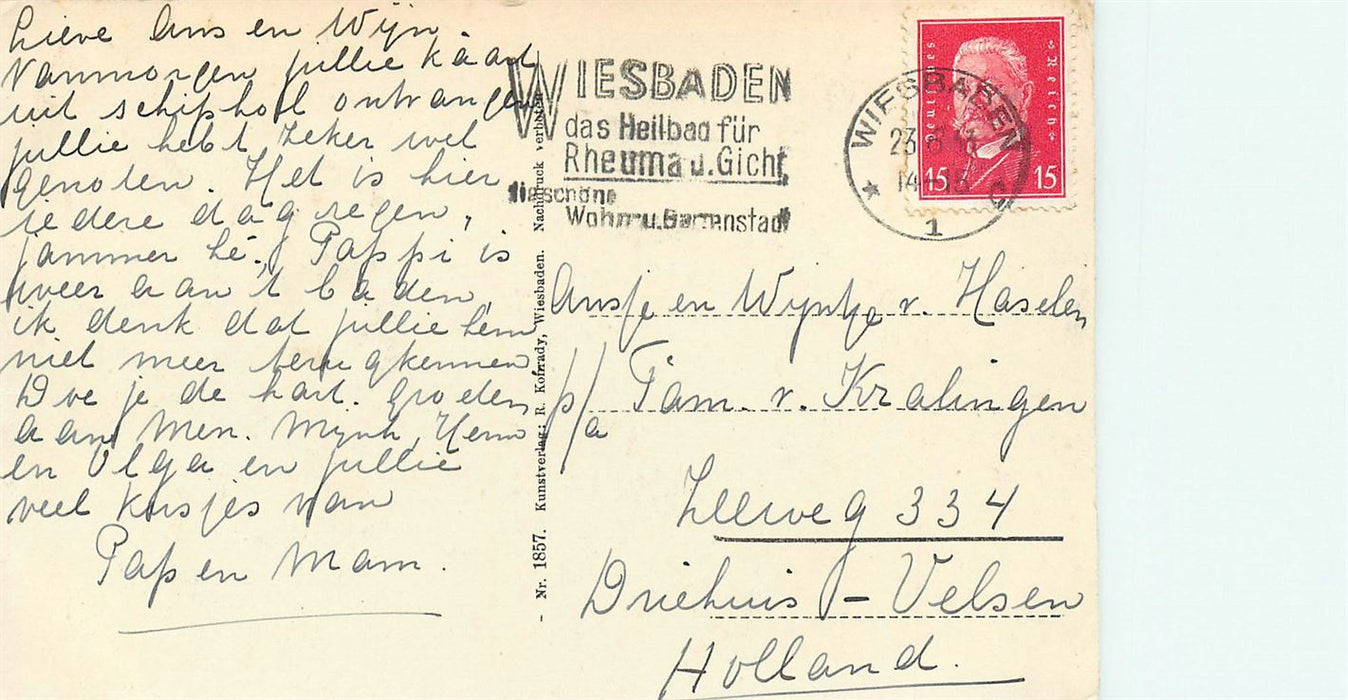 Lieve Ans en Wijn.
Vanmorgen jullie kaart
uit schiphol ontvangen
jullie hebt zeker wel
genoten. Het is hier
iedere dag regen,
jammer hè. Pappi is
weer aan 't baden,
ik denk dat jullie hem
niet meer terugkennen.
Doe je de hart. groeten
aan Men. Mynh, Henn
en Olga en jullie
veel kusjes van
Pap en Mam.
- Nr. 1857. Kunstverlag: R. Konrady, Wiesbaden. Nachdruck verboten
WIESBADEN
das Heilbad für
Rheuma u. Gicht
die schöne
Wohn- u. Gartenstadt
WIESBADEN
23.
14-
1
Deutsches Reich
15 15
Ansje en Wyntje v. Haselen
p/a Fam. v. Kralingen
Zeeweg 334
Driehuis - Velsen
Holland.